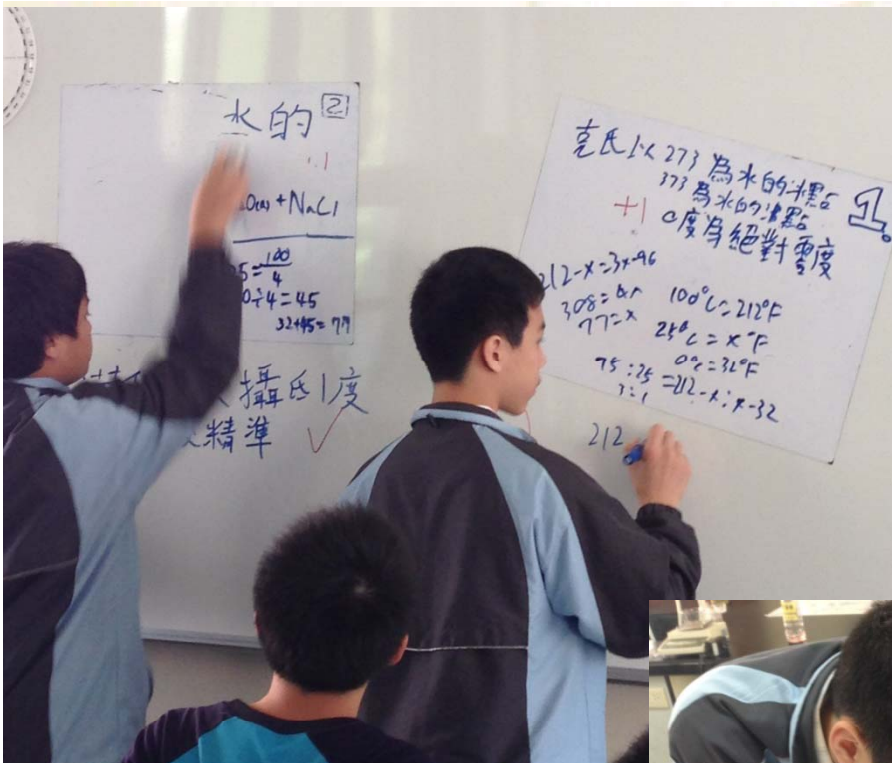 水的 2
+ NaCl
5 = 100/4
0÷4=45
32+45=77
攝氏1度
精準
克氏以273為水的冰點
373為水的沸點
0度為絕對零度
1
+1
212-x=3x-96
308=4x
77=x
100°C=212°F
25°C=x°F
0°C=32°F
75:25=212-x:x-32
3:1
212